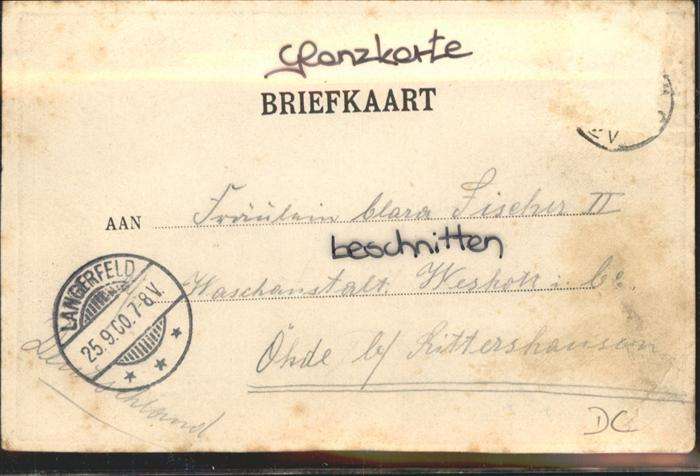 Glanzkarte
BRIEFKAART
V
AAN Fräulein Clara Fischer II
beschnitten
Waschanstalt Weshott i. Co.
Öhde b/ Rittershausen
LANGERFELD
25.9.00.7-8V.
Deutschland
DC